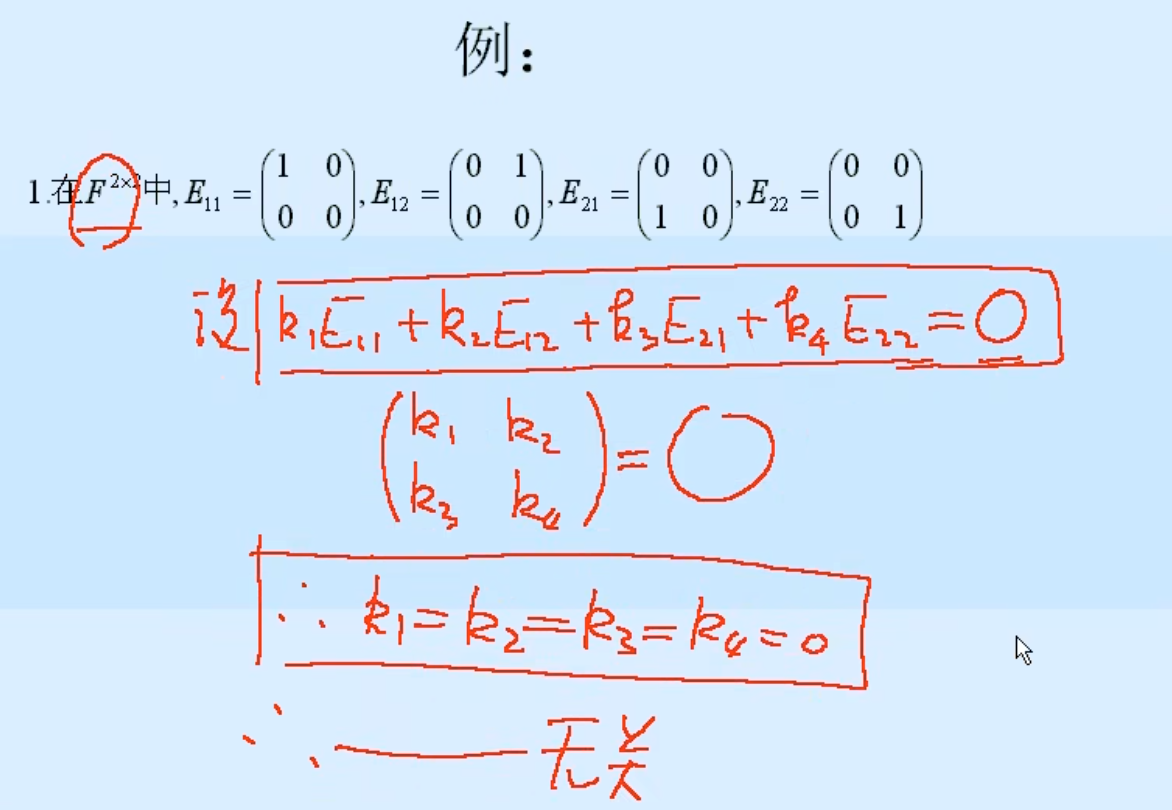 例：
1.在F^{2×2}中, E_{11} = \begin{pmatrix} 1 & 0 \\ 0 & 0 \end{pmatrix}, E_{12} = \begin{pmatrix} 0 & 1 \\ 0 & 0 \end{pmatrix}, E_{21} = \begin{pmatrix} 0 & 0 \\ 1 & 0 \end{pmatrix}, E_{22} = \begin{pmatrix} 0 & 0 \\ 0 & 1 \end{pmatrix}
设 k_1E_{11} + k_2E_{12} + k_3E_{21} + k_4E_{22} = 0
\begin{pmatrix} k_1 & k_2 \\ k_3 & k_4 \end{pmatrix} = 0
∴ k_1 = k_2 = k_3 = k_4 = 0
∴ —— 无关